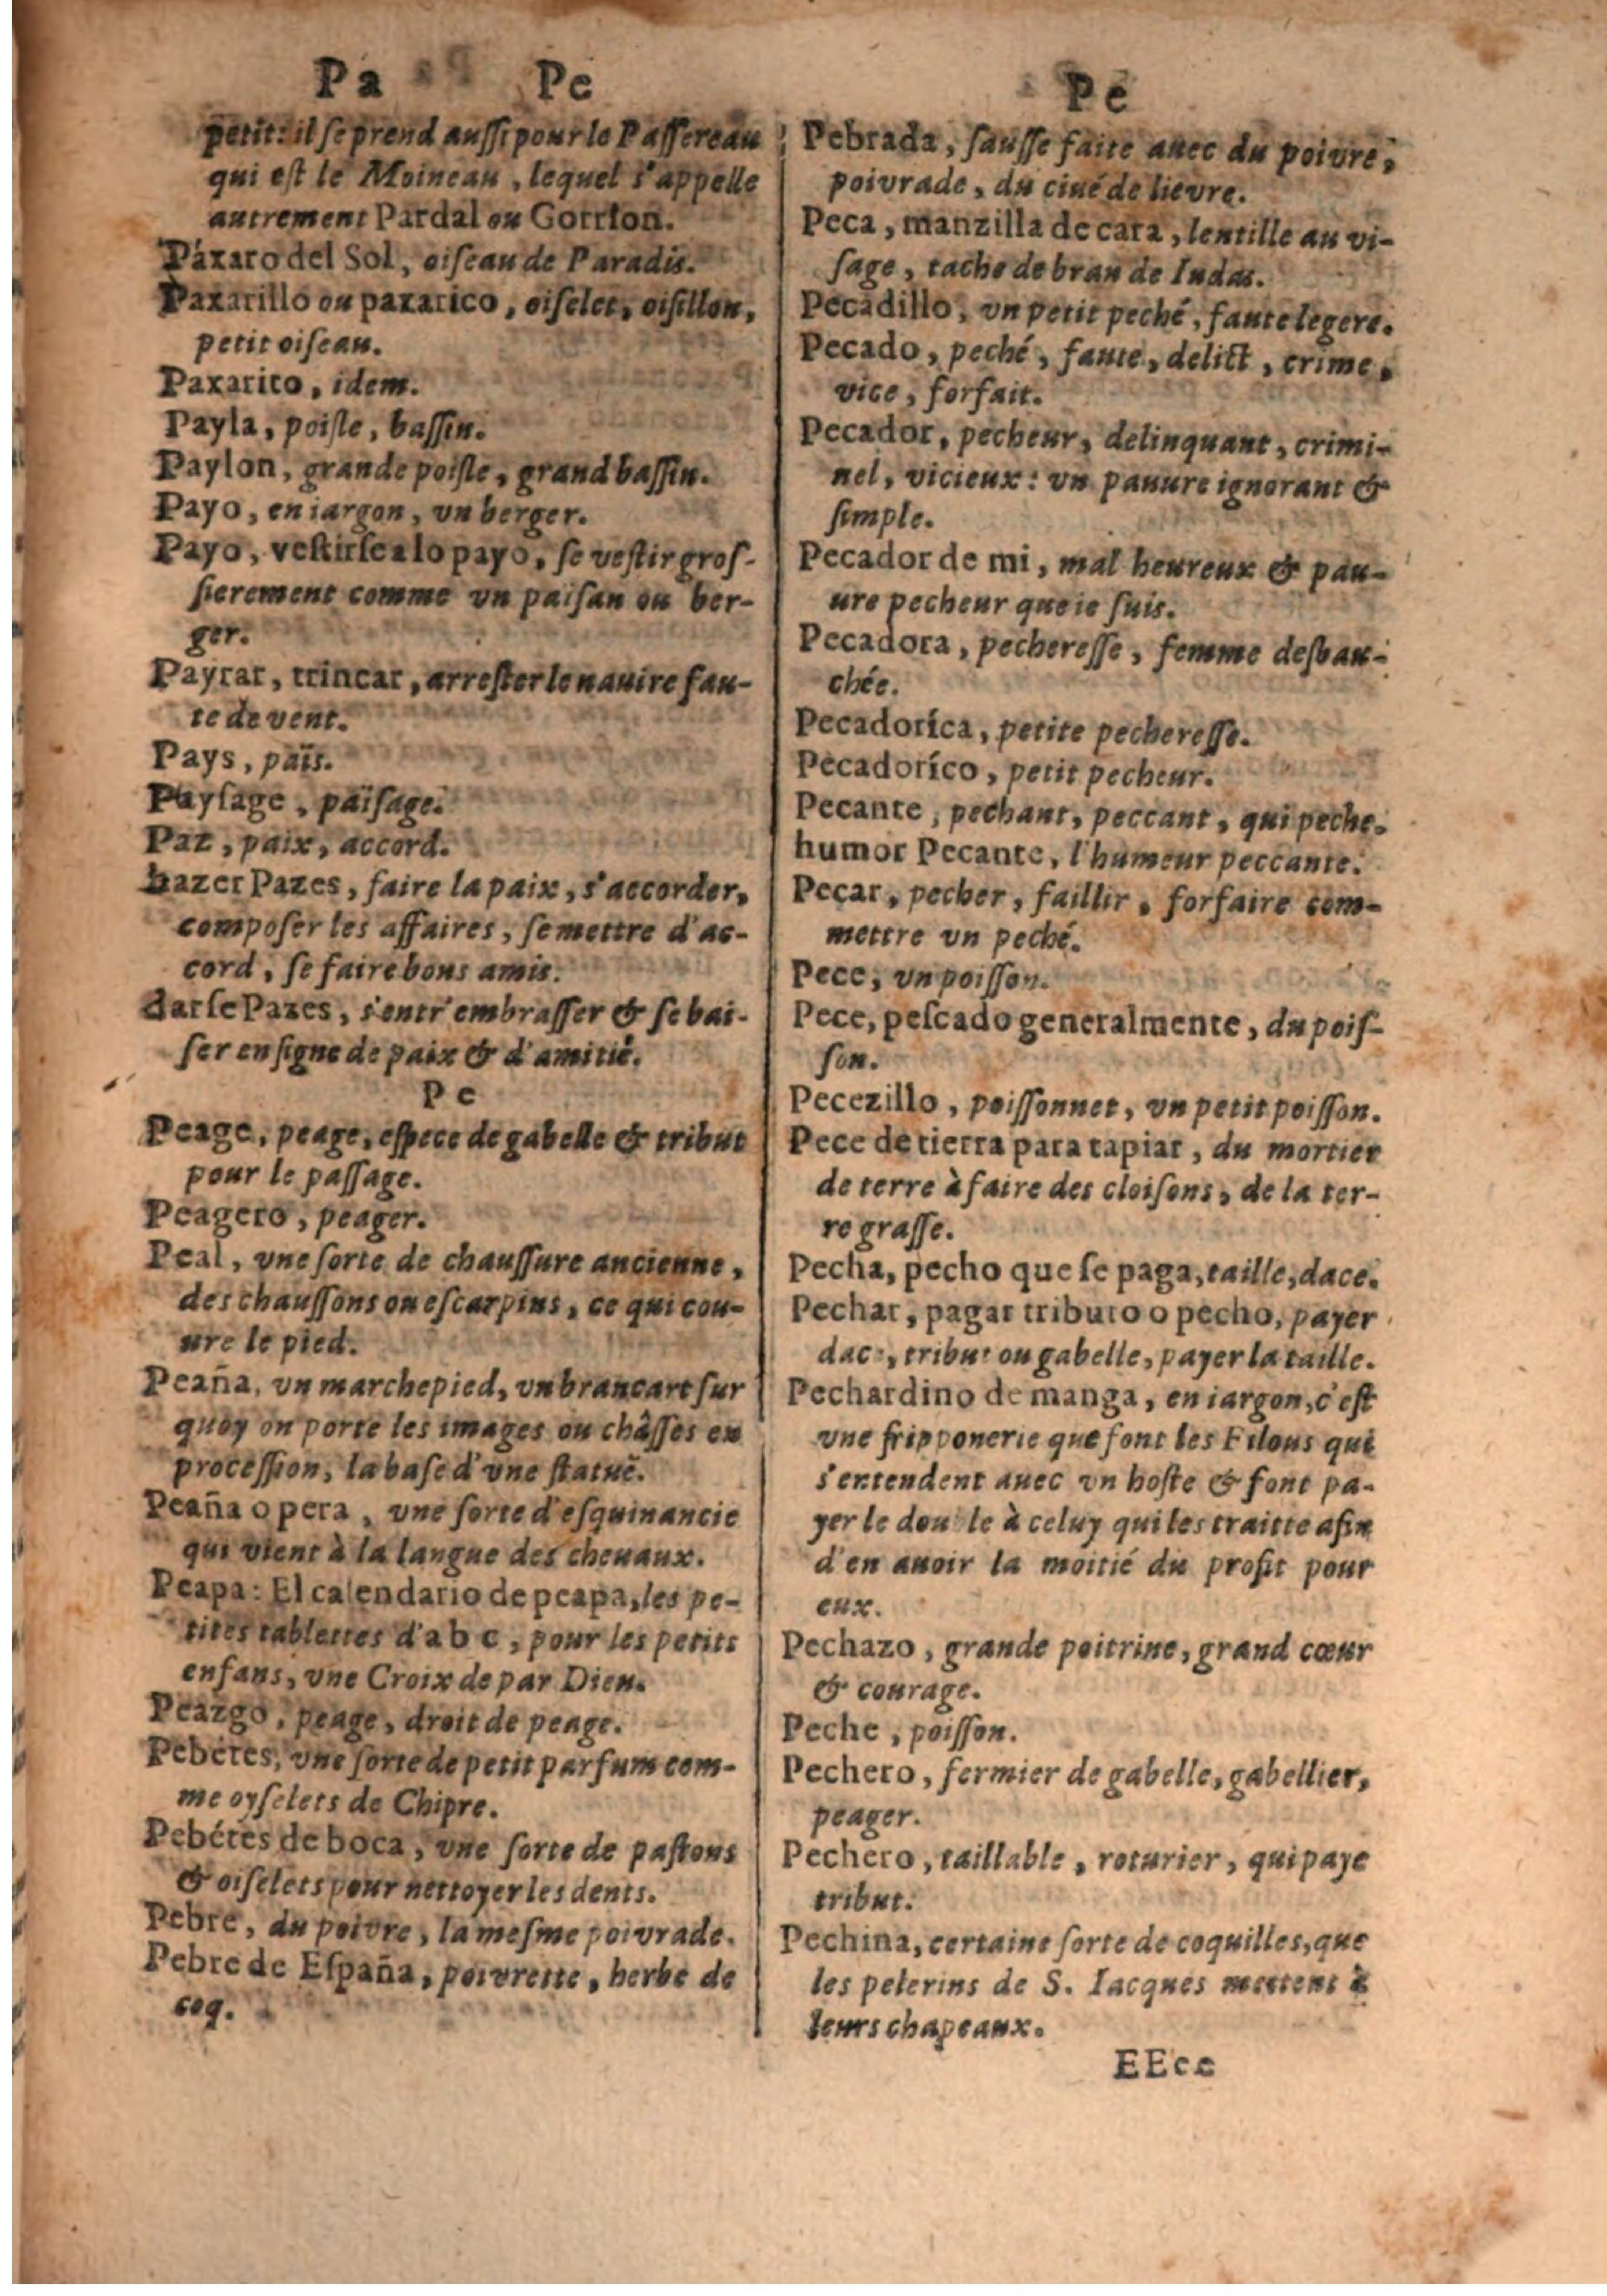 Pa Pe
petit: il ſe prend auſſi pour le Paſſereau
qui eſt le Moineau, lequel s'appelle
autrement Pardal ou Gorrion.
Páxaro del Sol, oiſeau de Paradis.
Paxarillo ou paxarico, oiſelet, oiſillon,
petit oiſeau.
Paxarito, idem.
Payla, poiſle, baſſin.
Paylon, grande poiſle, grand baſſin.
Payo, en iargon, vn berger.
Payo, veſtirſe a lo payo, ſe veſtir groſ-
ſierement comme vn païſan ou ber-
ger.
Payrar, trincar, arreſter le nauire fau-
te de vent.
Pays, païs.
Payſage, païſage.
Paz, paix, accord.
hazer Pazes, faire la paix, s'accorder,
compoſer les affaires, ſe mettre d'ac-
cord, ſe faire bons amis.
darſe Pazes, s'entr'embraſſer & ſe bai-
ſer en ſigne de paix & d'amitié.
Pe
Peage, peage, eſpece de gabelle & tribut
pour le paſſage.
Peagero, peager.
Peal, vne ſorte de chauſſure ancienne,
des chauſſons ou eſcarpins, ce qui cou-
ure le pied.
Peaña, vn marchepied, vn brancart ſur
quoy on porte les images ou châſſes en
proceſſion, la baſe d'vne ſtatuë.
Peaña o pera, vne ſorte d'eſquinancie
qui vient à la langue des cheuaux.
Peapa: El calendario de peapa, les pe-
tites tablettes d'a b c, pour les petits
enfans, vne Croix de par Dieu.
Peazgo, peage, droit de peage.
Pebétes, vne ſorte de petit parfum com-
me oyſelets de Chipre.
Pebétes de boca, vne ſorte de paſtons
& oiſelets pour nettoyer les dents.
Pebre, du poivre, la meſme poivrade.
Pebre de Eſpaña, poivrette, herbe de
coq.
Pe
Pebrada, ſauſſe faite auec du poivre,
poivrade, du ciué de lievre.
Peca, manzilla de cara, lentille au vi-
ſage, tache de bran de Iudas.
Pecadillo, vn petit peché, faute legere.
Pecado, peché, faute, delict, crime,
vice, forfait.
Pecador, pecheur, delinquant, crimi-
nel, vicieux: vn pauure ignorant &
ſimple.
Pecador de mi, mal heureux & pau-
ure pecheur que ie ſuis.
Pecadora, pechereſſe, femme desbau-
chée.
Pecadoríca, petite pechereſſe.
Pecadoríco, petit pecheur.
Pecante, pechant, peccant, qui peche.
humor Pecante, l'humeur peccante.
Peçar, pecher, faillir, forfaire com-
mettre vn peché.
Pece, vn poiſſon.
Pece, peſcado generalmente, du poiſ-
ſon.
Pecezillo, poiſſonnet, vn petit poiſſon.
Pece de tierra para tapiar, du mortier
de terre à faire des cloiſons, de la ter-
re graſſe.
Pecha, pecho que ſe paga, taille, dace.
Pechar, pagar tributo o pecho, payer
dace, tribut ou gabelle, payer la taille.
Pechardino de manga, en iargon, c'eſt
vne fripponerie que font les Filous qui
s'entendent auec vn hoſte & font pa-
yer le double à celuy qui les traitte afin
d'en auoir la moitié du profit pour
eux.
Pechazo, grande poitrine, grand cœur
& courage.
Peche, poiſſon.
Pechero, fermier de gabelle, gabellier,
peager.
Pechero, taillable, roturier, qui paye
tribut.
Pechina, certaine ſorte de coquilles, que
les pelerins de S. Iacques mettent à
leurs chapeaux.
EEee